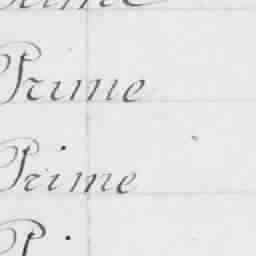 Prime
Prime